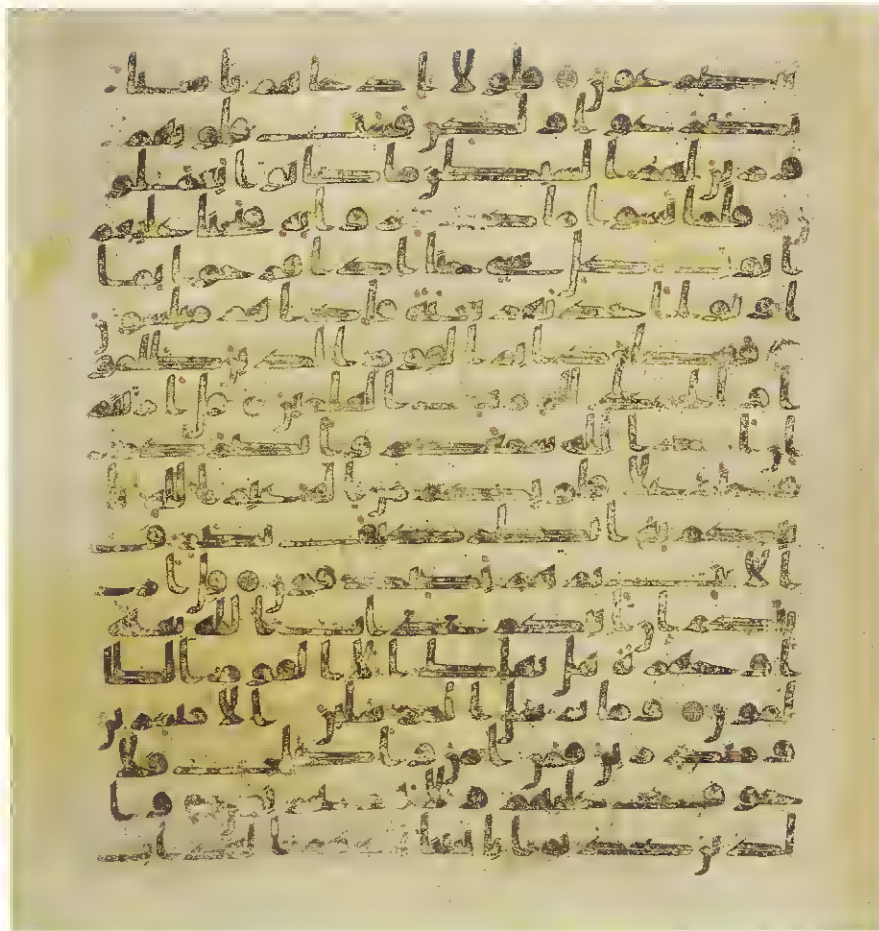 يتضرعون فلولا اذ جاهم باسنا
تضرعوا ولكن قست قلوبهم
وزين لهم الشيطن ما كانوا يعملو
ن فلما نسوا ما ذكروا به فتحنا عليهم
ابوب كل شى حتى اذا فرحوا بما
اوتوا اخذنهم بغتة فاذا هم مبلسون
فقطع دابر القوم الذين ظلمو
ا والحمد لله رب العلمين قل اريتم
ان اخذ الله سمعكم وابصركم
وختم على قلوبكم من اله غير الله
ياتيكم به انظر كيف نصرف
الايت ثم هم يصدفون قل ار
يتكم ان اتيكم عذاب الله بغتة
او جهرة هل يهلك الا القوم الظا
لمون وما نرسل المرسلين الا مبشرين
ومنذرين فمن امن واصلح فلا
خوف عليهم ولا هم يحزنون وا
لذين كذبوا بايتنا يمسهم العذاب